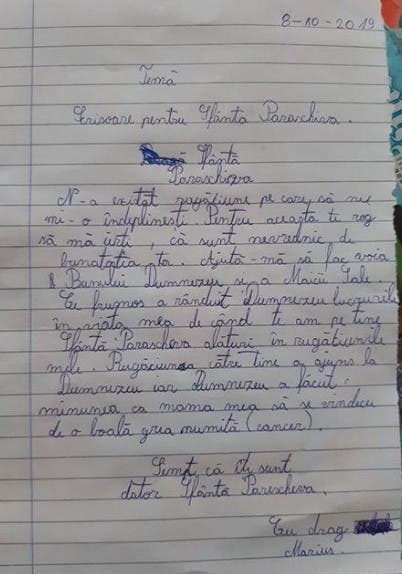 8-10-2019
Temă
Scrisoare pentru Sfânta Parascheva.
Sfântă
Parascheva
N-a existat rugăciune pe care să nu
mi-o îndeplinești. Pentru aceasta te rog
să mă ierți, că sunt nevrednic de
bunatatia ta. Ajută-mă să fac voia
Bunului Dumnezeu și a Maicii Sale.
Ce frumos a rânduit Dumnezeu lucrurile
în viața mea de când te am pe tine
Sfântă Parascheva alături în rugăciunile
mele. Rugăciunea către tine a ajuns la
Dumnezeu iar Dumnezeu a făcut
minunea ca mama mea să se vindecu
de o boală grea numită (cancer).
Simt că îți sunt
dator Sfântă Parescheva.
Cu drag
Marius.